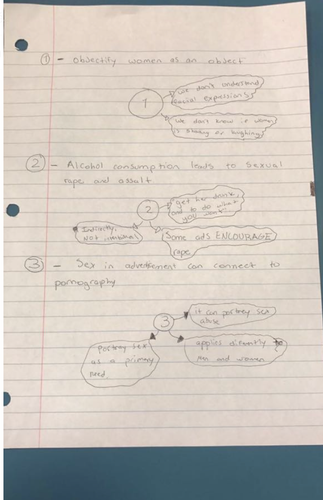 1 - Objectify women as an object
1
we don't understand
facial expressions
We don't know if women
is shaking or laughing
2 - Alcohol consumption leads to sexual
rape and assalt
2
get her drunk
to do what
you want
Subtlety,
Not intentional
Some ads ENCOURAGE
rape
3 - Sex in advertisement can connect to
pornography
3
it can portrey sex
abuse
portrey sex
as a primary
need
applies
to
men and women